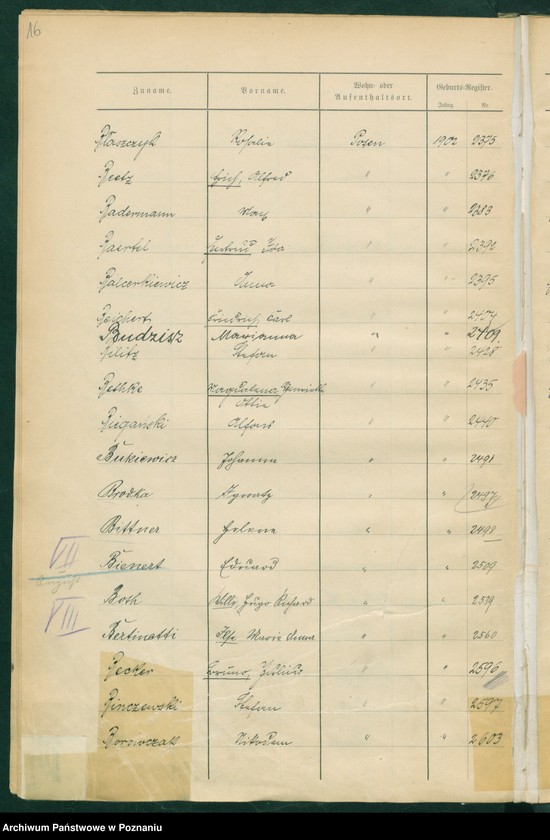 16
Zuname. Vorname. Wohn- oder Aufenthaltsort. Geburts-Register.
Jahrg. Nr.
Błaszczyk Rosalie Posen 1902 2375
Beetz Erich, Alfred " " 2376
Badermann Max " " 2383
Baertel Gertrud Ida " " 2392
Balcerkiewicz Anna " " 2395
Beschert Friedrich, Carl " " 2404
Budzisz Marianna " " 2409
Bilitz Stefan " " 2428
Bethke Magdalena, Henriette " " 2435
Ottilie
Biegański Alfons " " 2440
Bukiewicz Johanna " " 2491
Brodka Ignatz " " 2497
Bittner Helene " " 2498
VII
Bienert Eduard " " 2509
August
Both Willy, Hugo Richard " " 2539
VIII
Bertinatti Ilse Marie Anna " " 2560
Becker Bruno, Julius " " 2596
Binczewski Stefan " " 2597
Borowczak Nikodem " " 2603
Archiwum Państwowe w Poznaniu